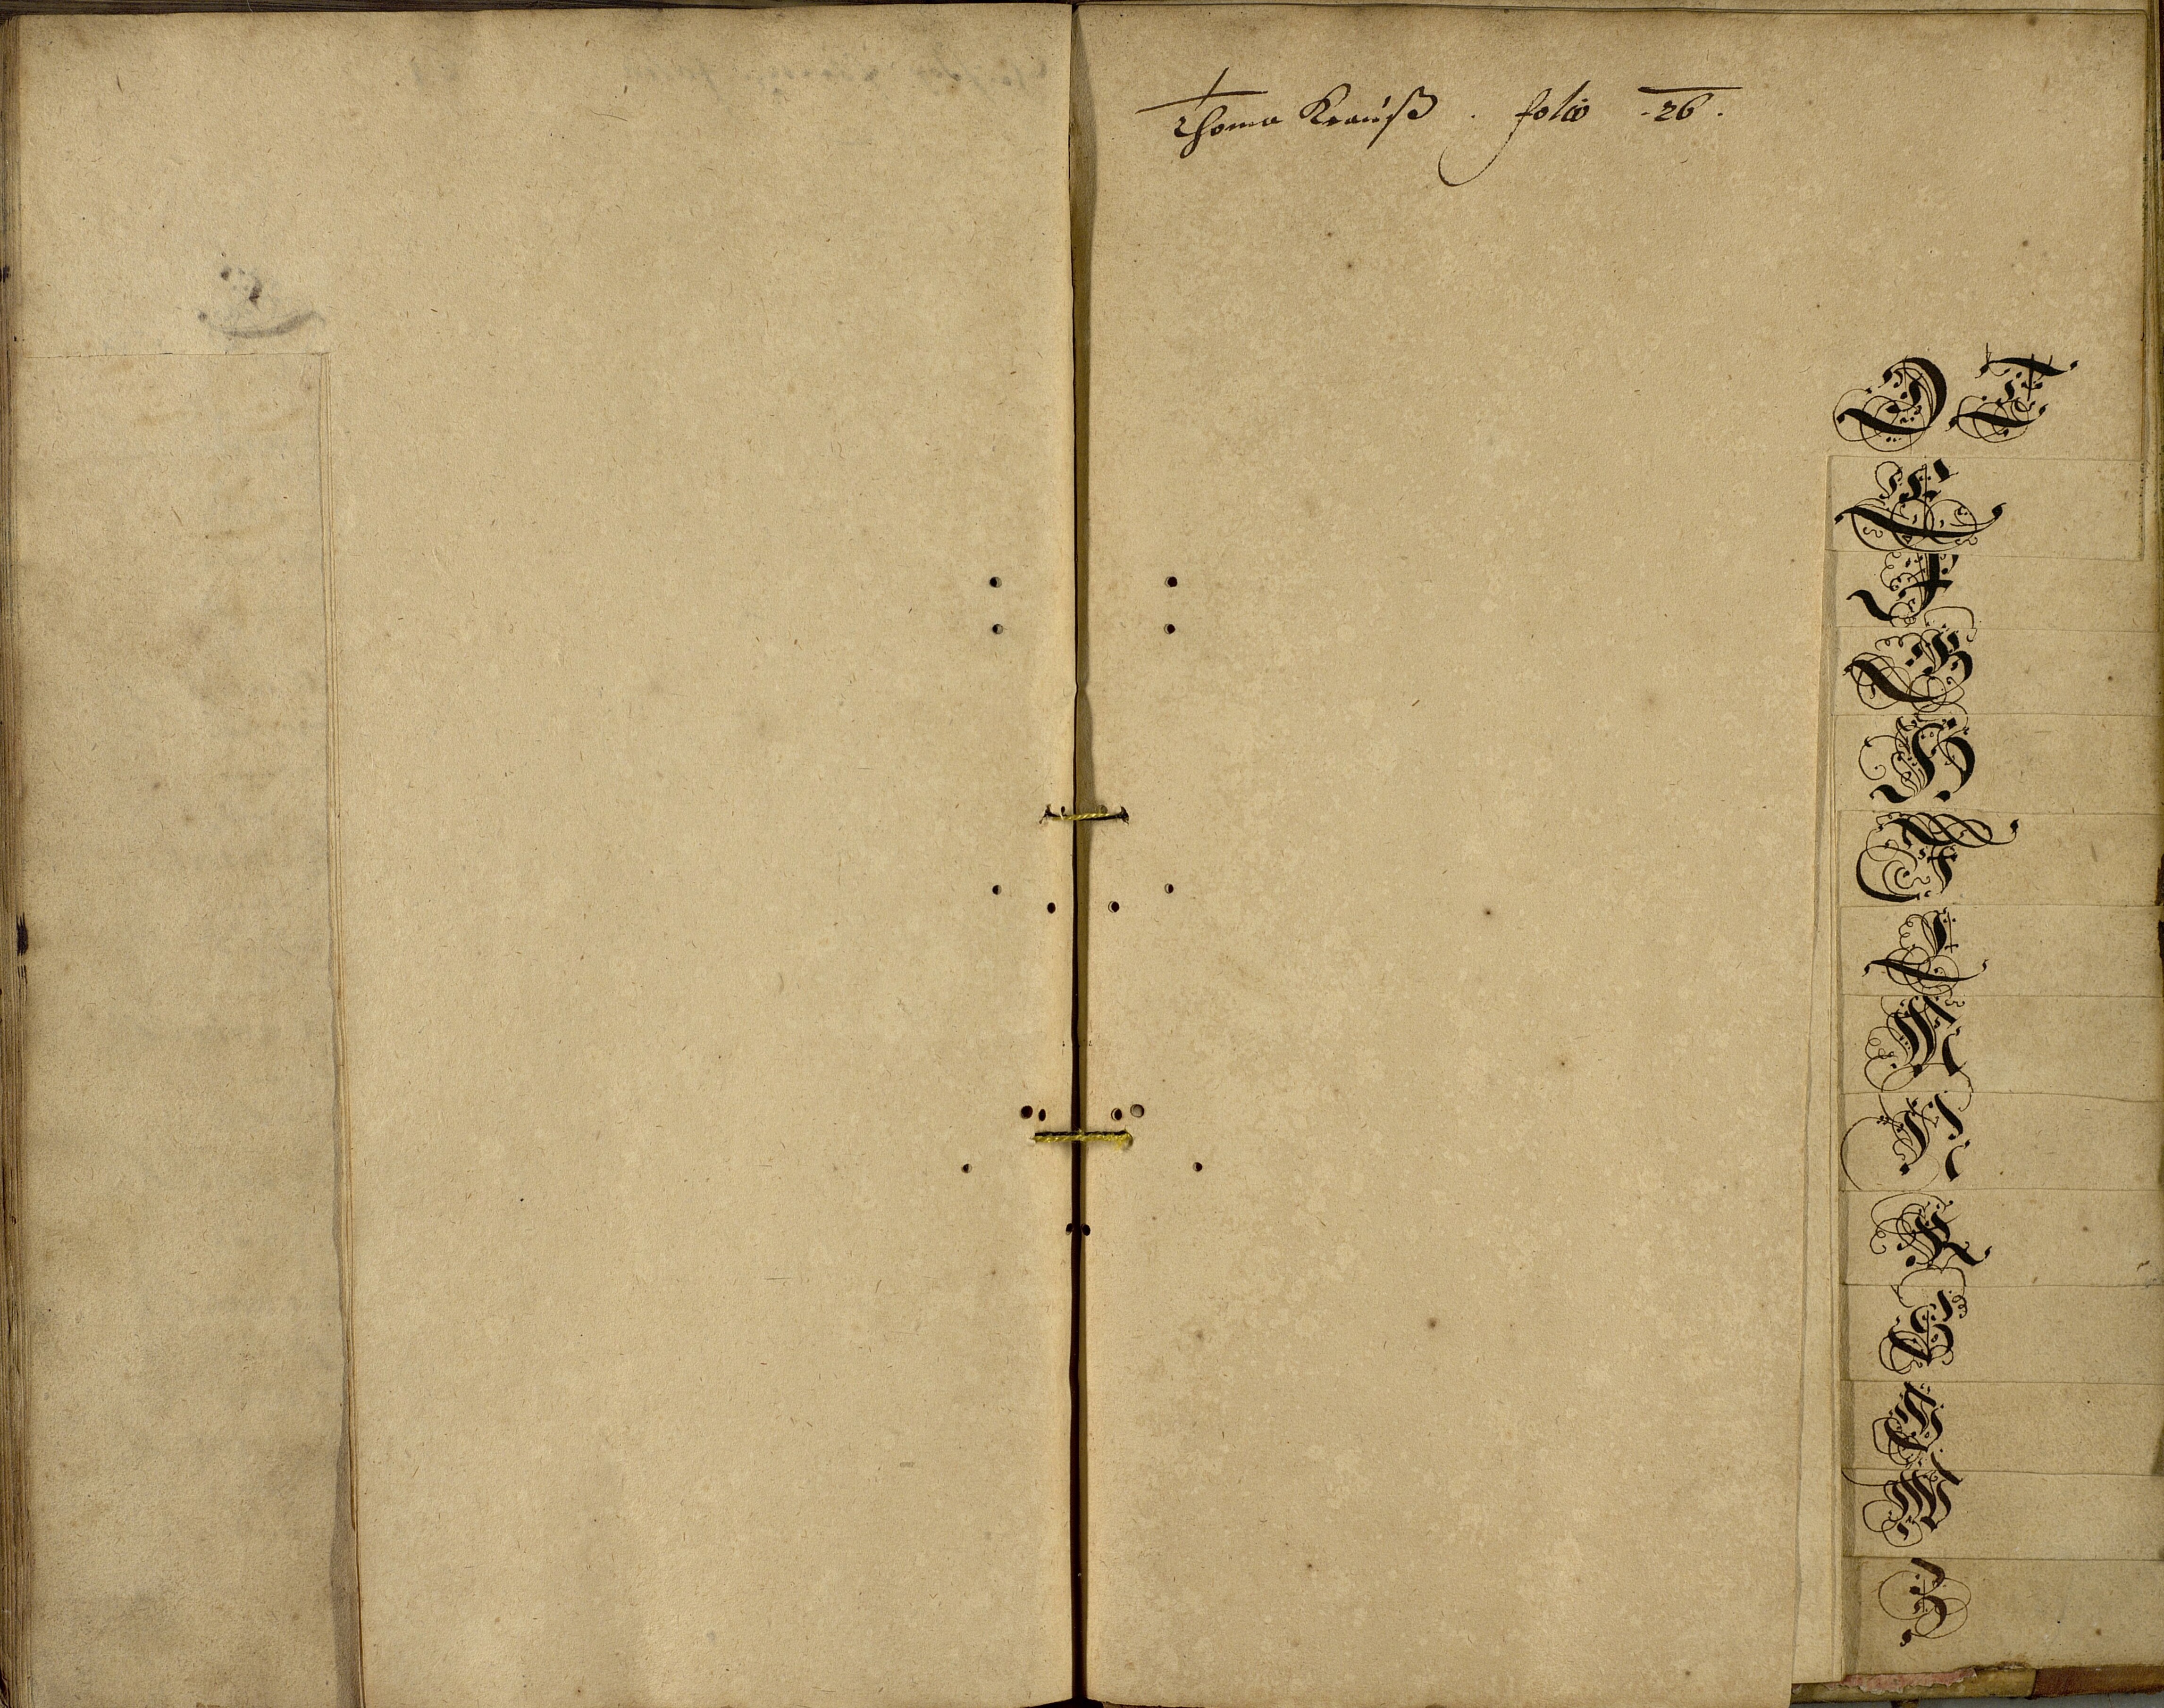 Thoma Krauß . folio -26.
D T
E
F
G
H
J
L
M
N
R
S
V
W
Z